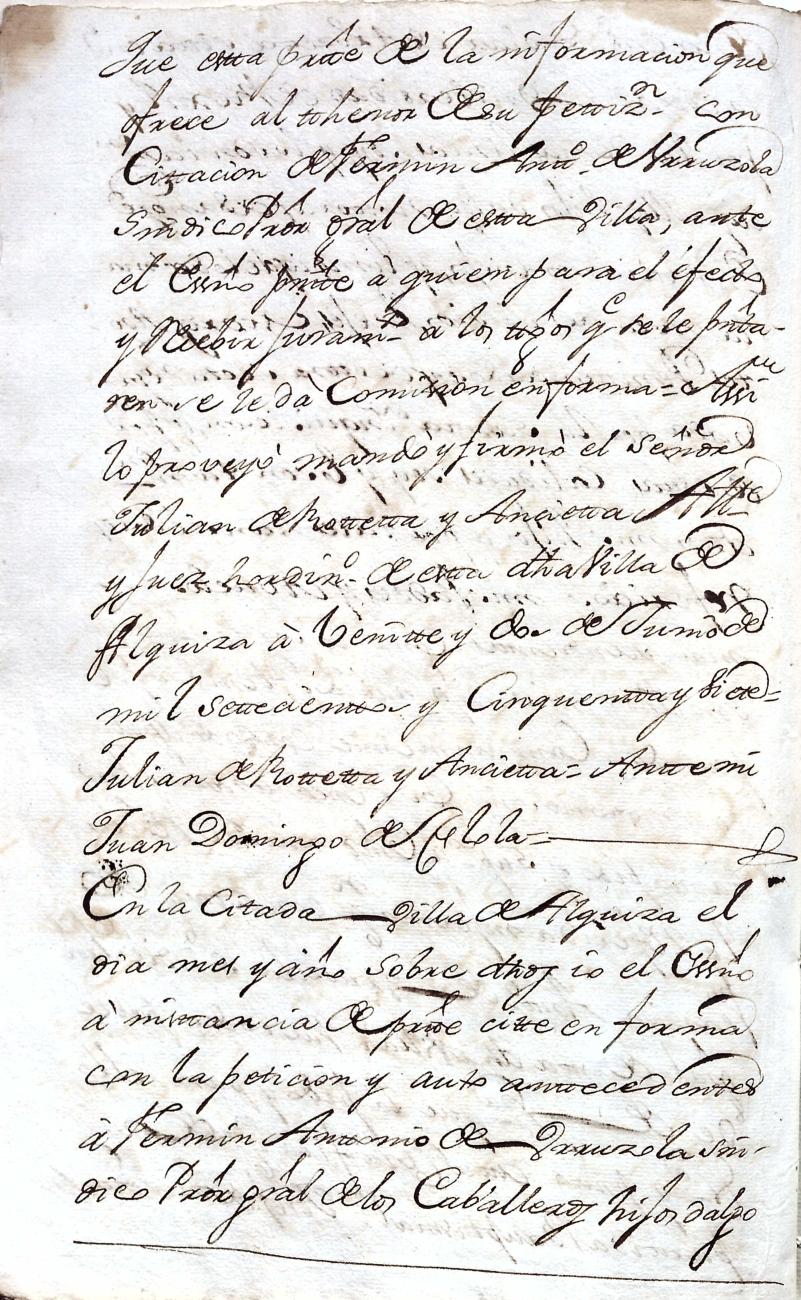 Que esta prtte de la informacion que
ofrece al thenor de su petiz.n con
Cittacion de Fermin Antt.o de Urruzola
Sindico Pror gral de esta Villa, ante
el Essno pnte a quien para el éfecto
y Recebir juramt.o a los tgos q.e se le pnta-
ren se le dà Comission en forma = Assi
lo proveyó mandò y firmò el señor
Julian de Rottetta y Ancietta Alle
y Juez hordin.o de esta dha Villa de
Alquiza à Veintte y dos de Junio de
mil settecientos y Cinquentta y siete=
Julian de Rottetta y Ancietta= Antte mi
Juan Domingo de Lelola=
En la Citada Villa de Alquiza el
dia mes y año sobre dhos io el Essno
à instancia de prtte citte en forma
con la peticion y auto anttecedentes
à Fermin Antonio de Urruzola sin-
dico Pror gral de los Caballeros hijos dalgo